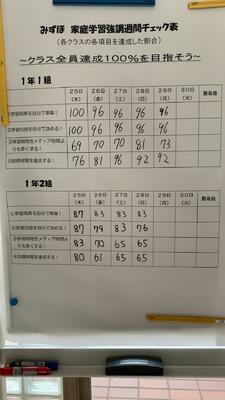 みずほ 家庭学習強調週間チェック表
（各クラスの各項目を達成した割合）
～クラス全員達成100％を目指そう～
1年1組
25日（木） 26日（金） 27日（土） 28日（日） 29日（月） 30日（火） 最高値
①学習用具を自分で準備！ 100 96 96 96 96
②学習内容を自分で決める！ 100 96 96 96 96
③学習時間をメディア時間よりも多くする！ 69 70 70 81 73
④目標時間を達成する！ 76 81 96 92 92
1年2組
25日（木） 26日（金） 27日（土） 28日（日） 29日（月） 30日（火） 最高値
①学習用具を自分で準備！ 87 83 83 83
②学習内容を自分で決める！ 87 79 83 76
③学習時間をメディア時間よりも多くする！ 83 70 65 65
④目標時間を達成する！ 80 61 65 65